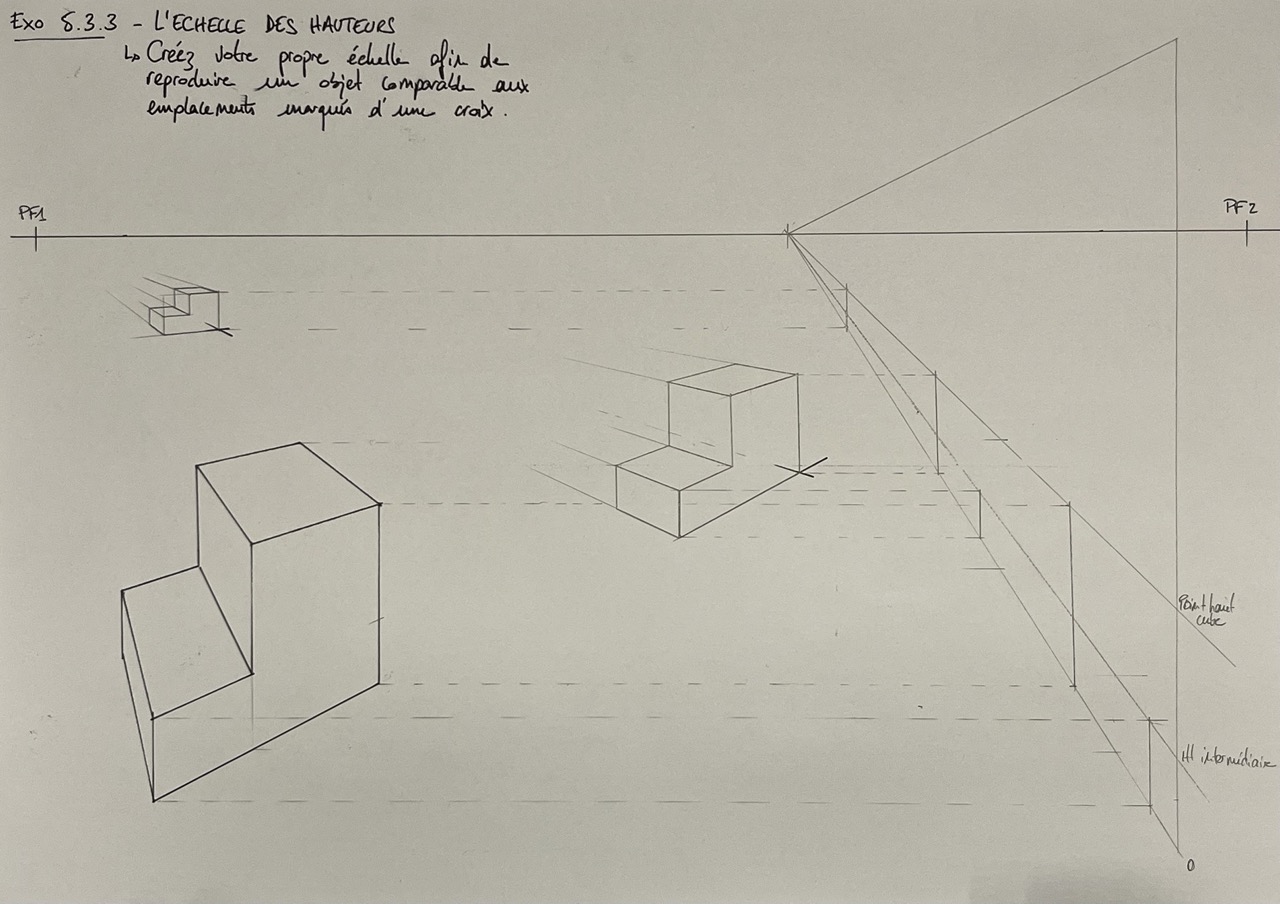 Exo 5.3.3 - L'ECHELLE DES HAUTEURS
↳ Créez votre propre échelle afin de
reproduire un objet comparable aux
emplacements marqués d'une croix.
PF1
PF2
Point haut
cube
Ht intermédiaire
0